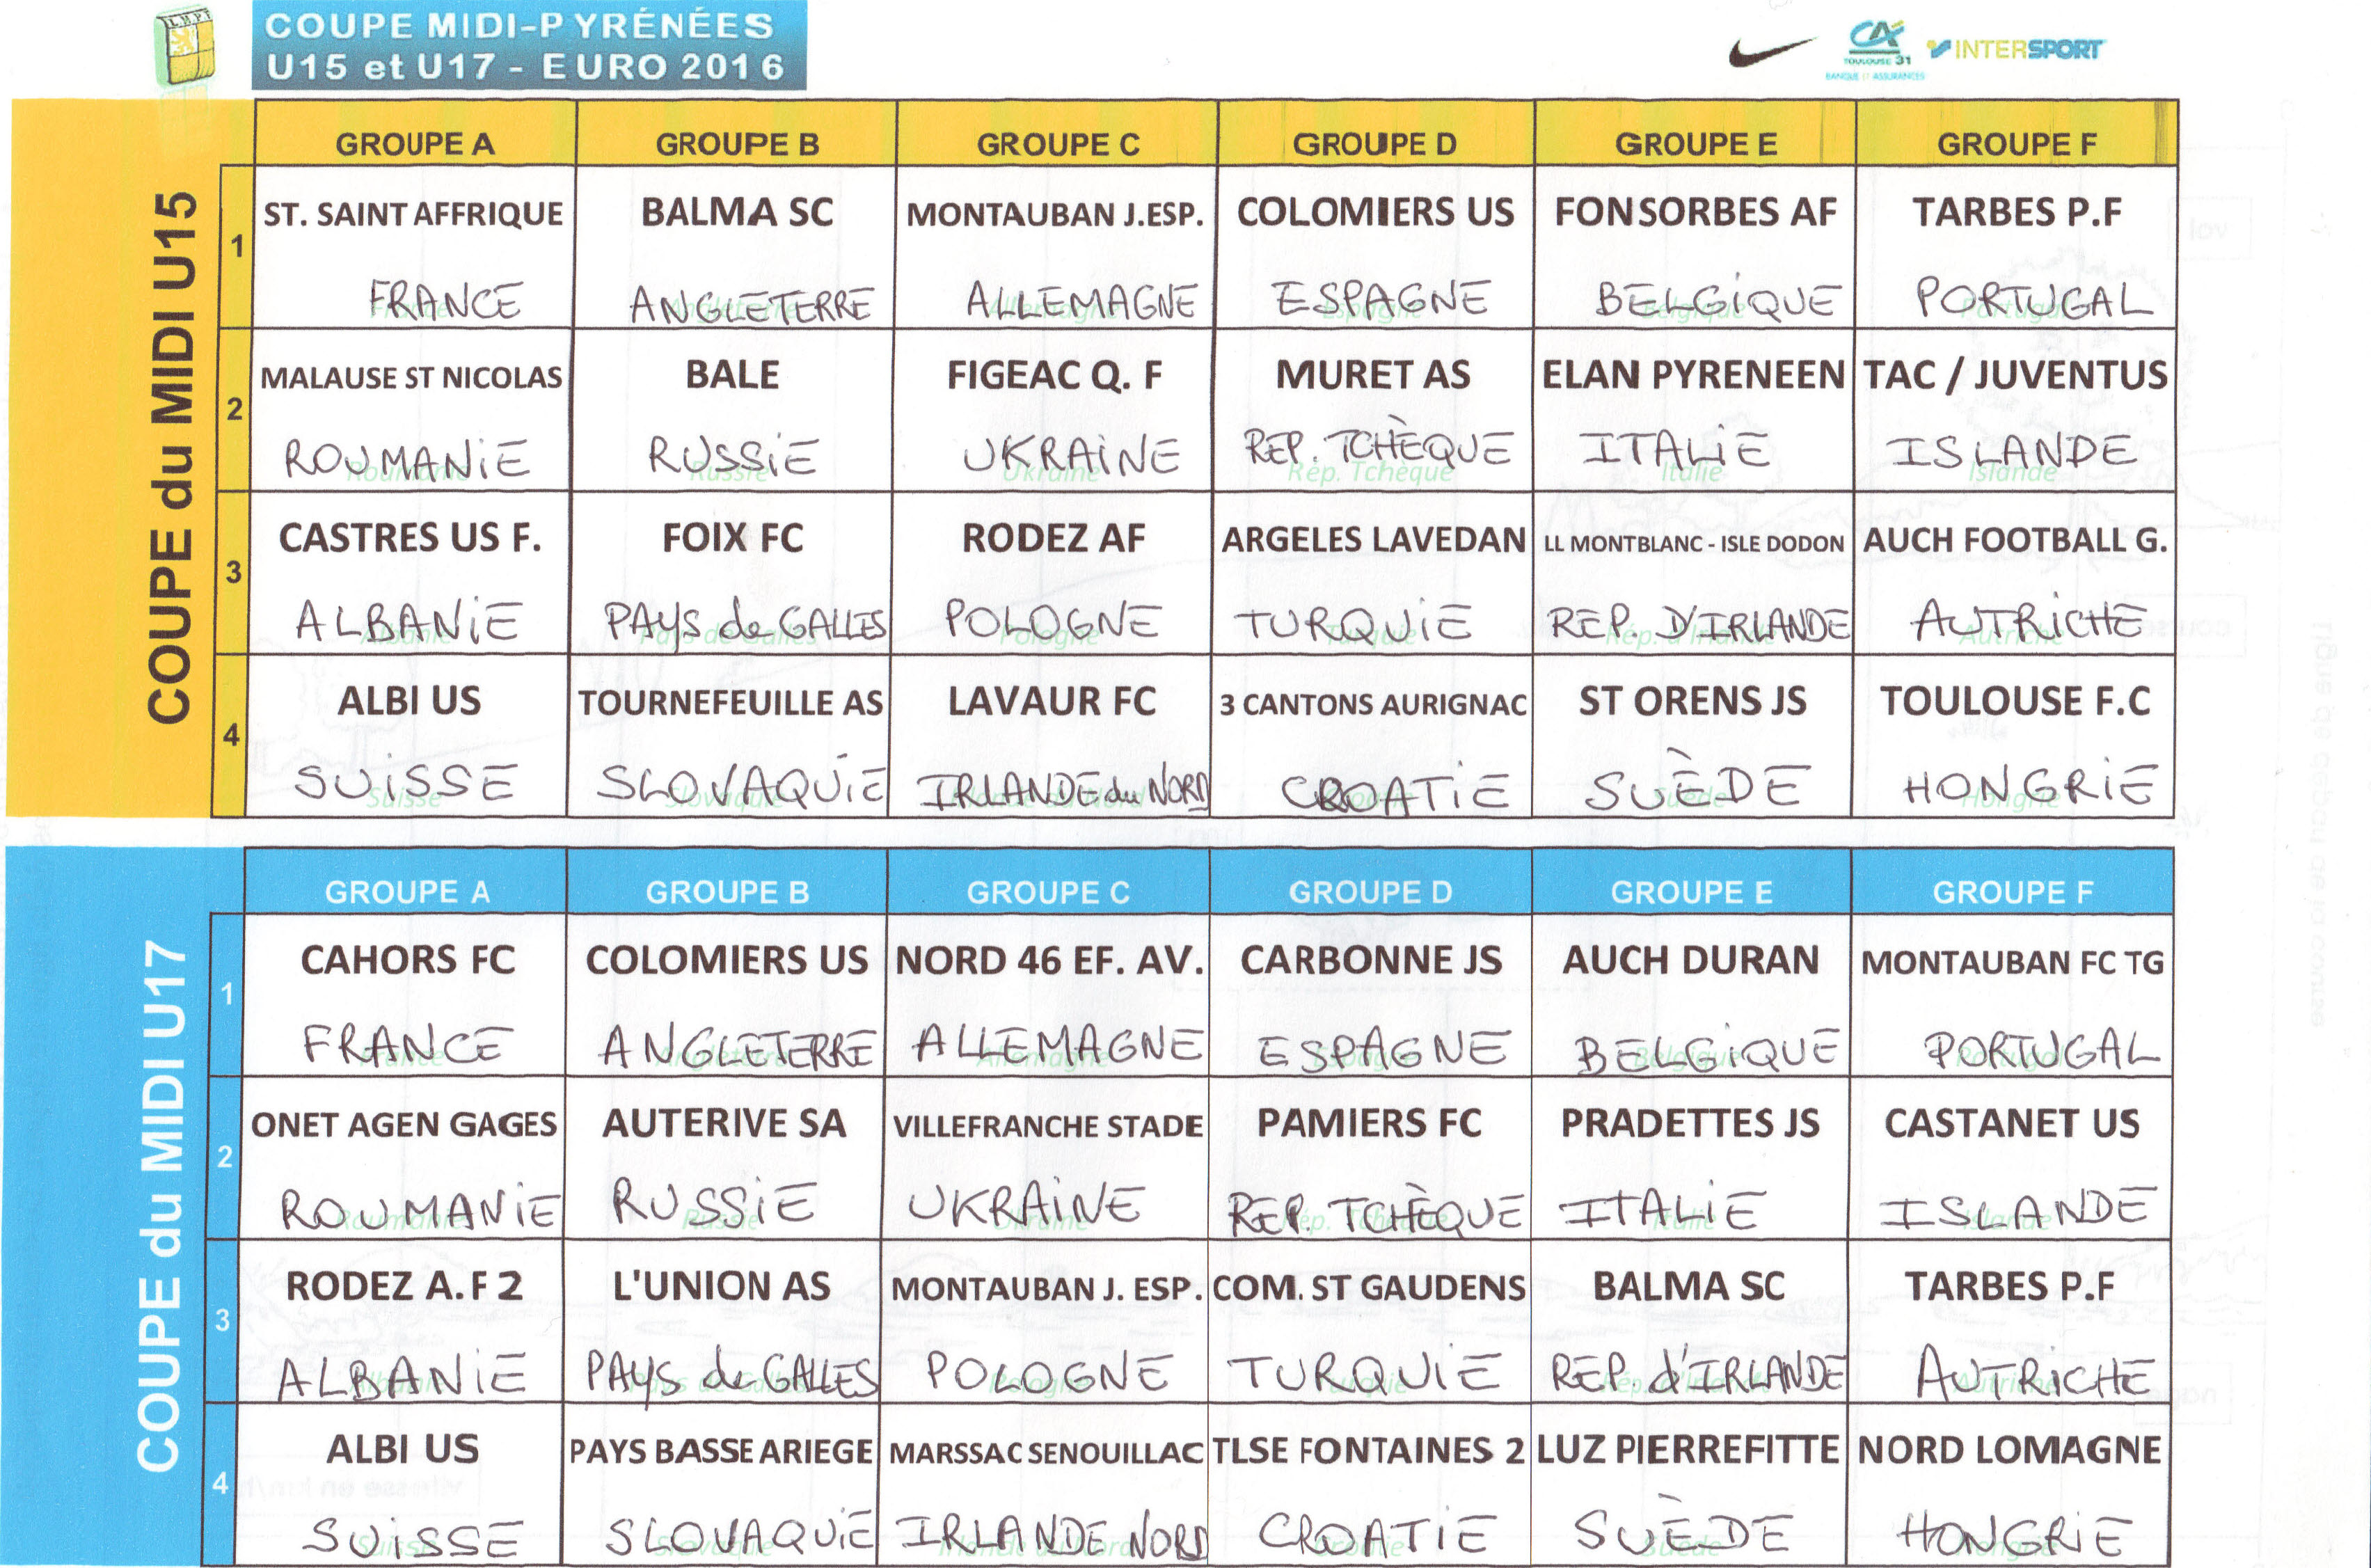 COUPE MIDI-PYRÉNÉES
U15 et U17 - EURO 2016
CA
TOULOUSE 31
BANQUE ET ASSURANCES
INTERSPORT
COUPE du MIDI U15
GROUPE A GROUPE B GROUPE C GROUPE D GROUPE E GROUPE F
1
ST. SAINT AFFRIQUE BALMA SC MONTAUBAN J.ESP. COLOMIERS US FONSORBES AF TARBES P.F
FRANCE ANGLETERRE ALLEMAGNE ESPAGNE BELGIQUE PORTUGAL
2
MALAUSE ST NICOLAS BALE FIGEAC Q. F MURET AS ELAN PYRENEEN TAC / JUVENTUS
ROUMANIE RUSSIE UKRAINE REP. TCHÈQUE ITALIE ISLANDE
3
CASTRES US F. FOIX FC RODEZ AF ARGELES LAVEDAN LL MONTBLANC - ISLE DODON AUCH FOOTBALL G.
ALBANIE PAYS de GALLES POLOGNE TURQUIE REP. D'IRLANDE AUTRICHE
4
ALBI US TOURNEFEUILLE AS LAVAUR FC 3 CANTONS AURIGNAC ST ORENS JS TOULOUSE F.C
SUISSE SLOVAQUIE IRLANDE du NORD CROATIE SUÈDE HONGRIE
COUPE du MIDI U17
GROUPE A GROUPE B GROUPE C GROUPE D GROUPE E GROUPE F
1
CAHORS FC COLOMIERS US NORD 46 EF. AV. CARBONNE JS AUCH DURAN MONTAUBAN FC TG
FRANCE ANGLETERRE ALLEMAGNE ESPAGNE BELGIQUE PORTUGAL
2
ONET AGEN GAGES AUTERIVE SA VILLEFRANCHE STADE PAMIERS FC PRADETTES JS CASTANET US
ROUMANIE RUSSIE UKRAINE REP. TCHÈQUE ITALIE ISLANDE
3
RODEZ A.F 2 L'UNION AS MONTAUBAN J. ESP. COM. ST GAUDENS BALMA SC TARBES P.F
ALBANIE PAYS de GALLES POLOGNE TURQUIE REP. d'IRLANDE AUTRICHE
4
ALBI US PAYS BASSE ARIEGE MARSSAC SENOUILLAC TLSE FONTAINES 2 LUZ PIERREFITTE NORD LOMAGNE
SUISSE SLOVAQUIE IRLANDE NORD CROATIE SUÈDE HONGRIE